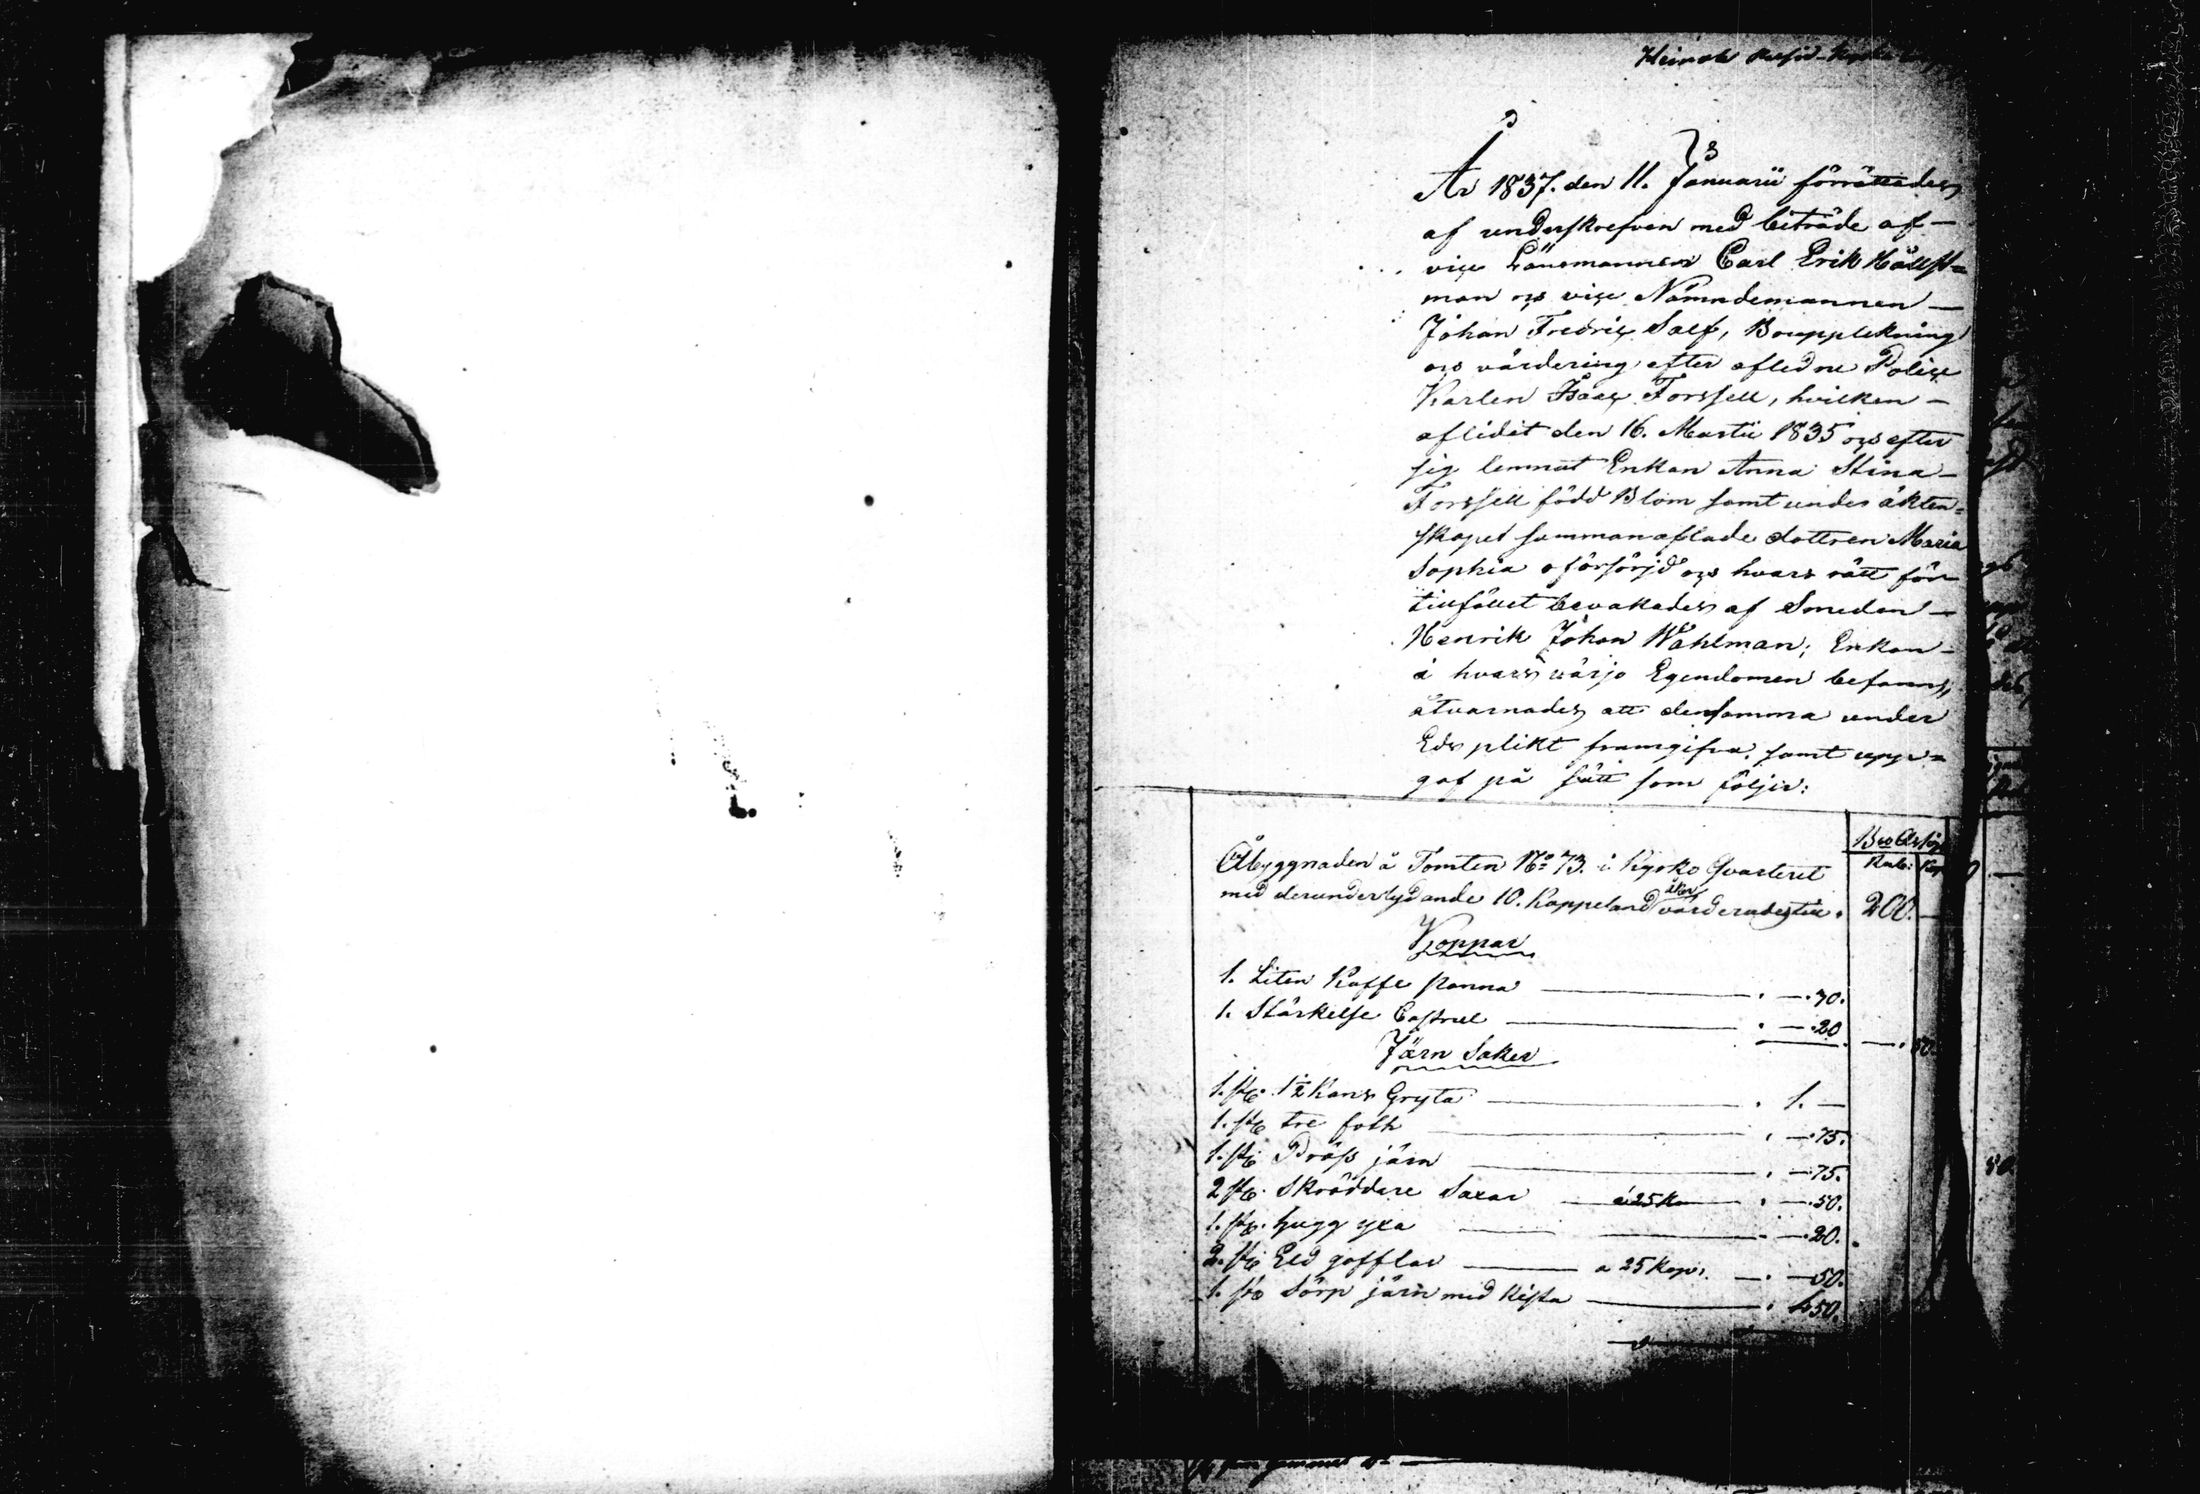 År 1837. den 11. Januarii förrättades
af underskrefven med biträde af —
vice Länsmannen Carl Erik Hällst=
man och vice Nämndemannen —
Johan Fredric Salf, Bouppteckning
och värdering efter aflednе Polise
Karlen Isaac Forssell, hvilken —
aflidit den 16. Martii 1835 och efter
sig lemnat Enkan Anna Stina —
Forssell född Blom samt under äkten=
skapet sammanaflade dottren Maria
Sophia oförsörjd och hvars rätt för
tillfället bevakades af Smeden —
Henrik Johan Wahlman; Enkan —
i hvars värjo Egendomen befanns,
åtvarnades att densamma under
Eds plikt framgifva, samt upp=
gaf på sätt som följer:
Bco Assig
Rub: Kop
Åbyggnaden å Tomten No 73. i Kyrko Qvarteret
åker
med derunderlydande 10. Kappeland värderades till . 200. —
Koppar
1. Liten Kaffe panna — . — . 30.
1. Stärkelse Castrull — . — . 20 — . 50.
Järn Saker
1. st. 1 1/2 Kans Gryta — . 1. —
1. st. tre foth — . — . 75.
1. st. Präss järn — . — . 75.
2 st. Skräddare Saxar — à 25 K — . — . 50.
1. st. hugg yxa — . — . 20.
2. st. Eld gafflar — a 25 Kop. — . — 50.
1. st. Sörp järn med Kista — . 1. 50.